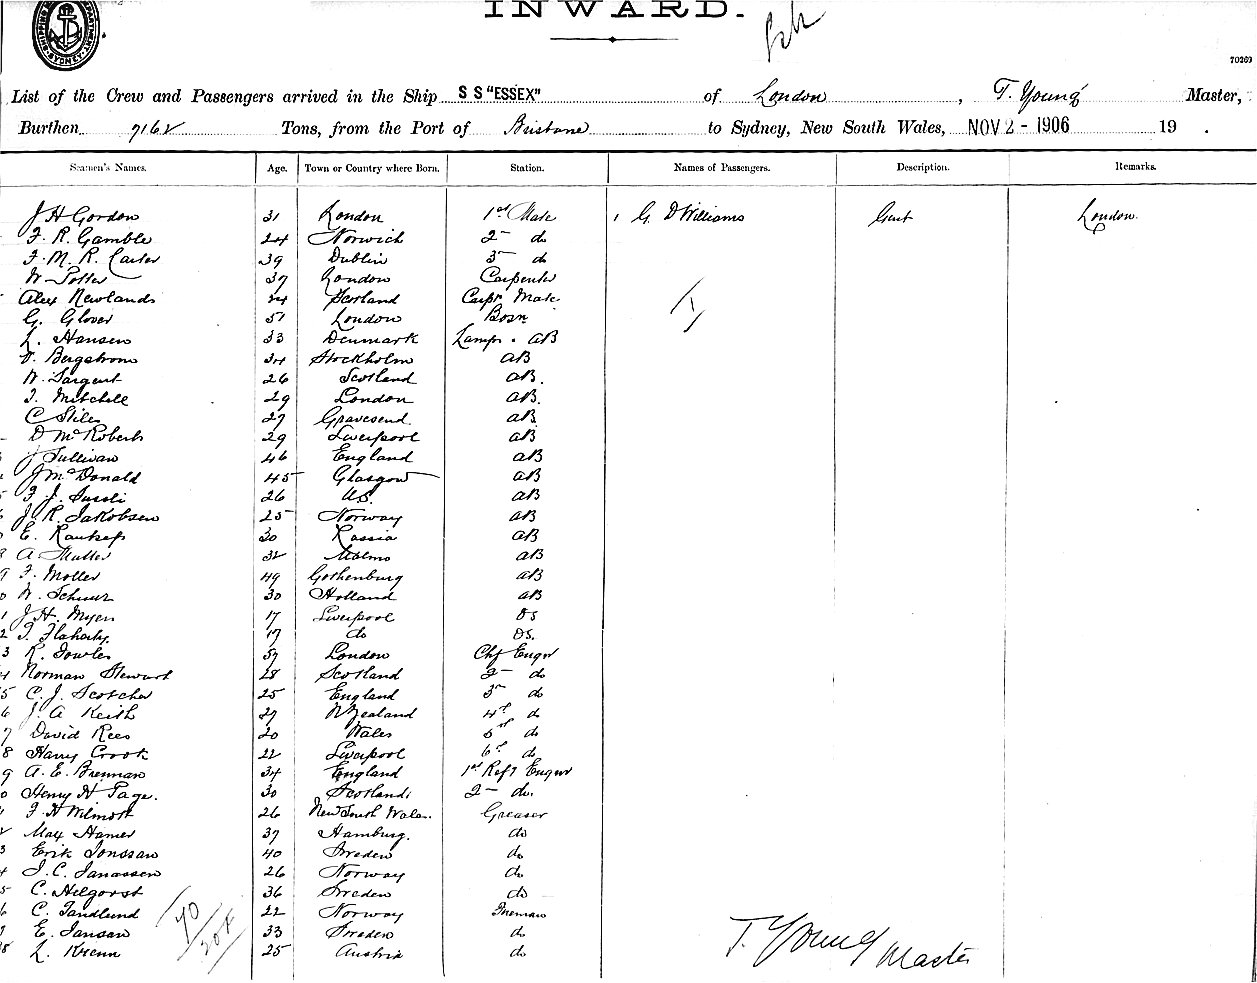 INWARD.
SYDNEY
70269
List of the Crew and Passengers arrived in the Ship S S "ESSEX" of London, T. Young Master,
Burthen 7162 Tons, from the Port of Brisbane to Sydney, New South Wales, NOV 2 - 1906 19 .
Seamen's Names. Age. Town or Country where Born. Station. Names of Passengers. Description. Remarks.
J H Gordon 31 London 1st Mate 1 G D Williams Gent London
F. R. Gamble 24 Norwich 2 do
F. M. R. Carter 39 Dublin 3 do
W Potter 37 London Carpenter
Alex Newlands 24 Scotland Carpr Mate
G. Glover 51 London Bosn
L. Hansen 33 Denmark Lamps. AB
Bergstrom 34 Stockholm AB
W. Sargent 26 Scotland AB.
J. Mitchell 29 London AB.
C Stiles 27 Gravesend. AB
D McRoberts 29 Liverpool AB
J Sullivan 46 England AB
J McDonald 45 Glasgow AB
F. J. 26 U.S. AB
J. R. Jakobsen 25 Norway AB
E. 30 Russia AB
8 A 32 Malmo AB
9 F. Moller 49 Gothenburg AB
0 W. Schuur 30 Holland AB
1 J. H. Myers 17 Liverpool OS
2 T. Flaherty. 17 do OS.
3 R. Fowles 57 London Chf Engnr
4 Norman Stewart 28 Scotland 2 do
5 C. J. Scotcher 25 England 3 do
6 J. A Keith 27 N Zealand 4th do
7 David Rees 20 Wales 5th do
8 Harry Crook 22 Liverpool 6th do
9 A. E. Brennan 34 England 1st Refr Engnr
0 Henry H Page. 30 Scotland 2 do.
F H Wilmott 26 New South Wales. Greaser
Max Hamer 37 Hamburg. do
3 Erik Jonssan 40 Sweden do
4 J. C. Janassen 26 Norway do
5 C. 36 Sweden do
6 C. Sandlund 22 Norway Fireman
7 E. Jansan 33 Sweden do
8 L. Krenn 25 Austria do
T. Young Master